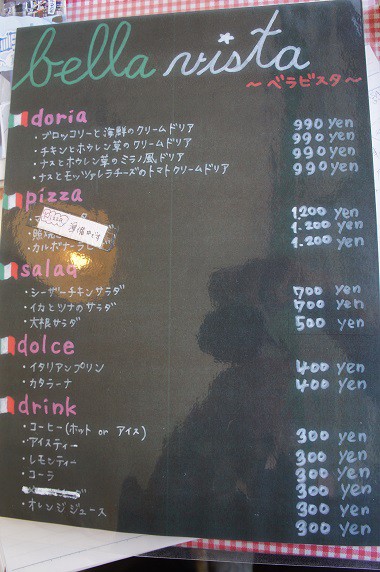 bella vista
～ベラビスタ～
doria
・ブロッコリーと海鮮のクリームドリア 990 yen
・チキンとホウレン草のクリームドリア 990 yen
・ナスとホウレン草のミラノ風ドリア 990 yen
・ナスとモッツァレラチーズのトマトクリームドリア 990 yen
pizza
1,200 yen
準備中です 1,200 yen
・カルボナーラピ 1,200 yen
salad
・シーザーチキンサラダ 700 yen
・イカとツナのサラダ 700 yen
・大根サラダ 500 yen
dolce
・イタリアンプリン 400 yen
・カタラーナ 400 yen
drink
・コーヒー(ホット or アイス) 300 yen
・アイスティー 300 yen
・レモンティー 300 yen
・コーラ 300 yen
300 yen
・オレンジジュース 300 yen